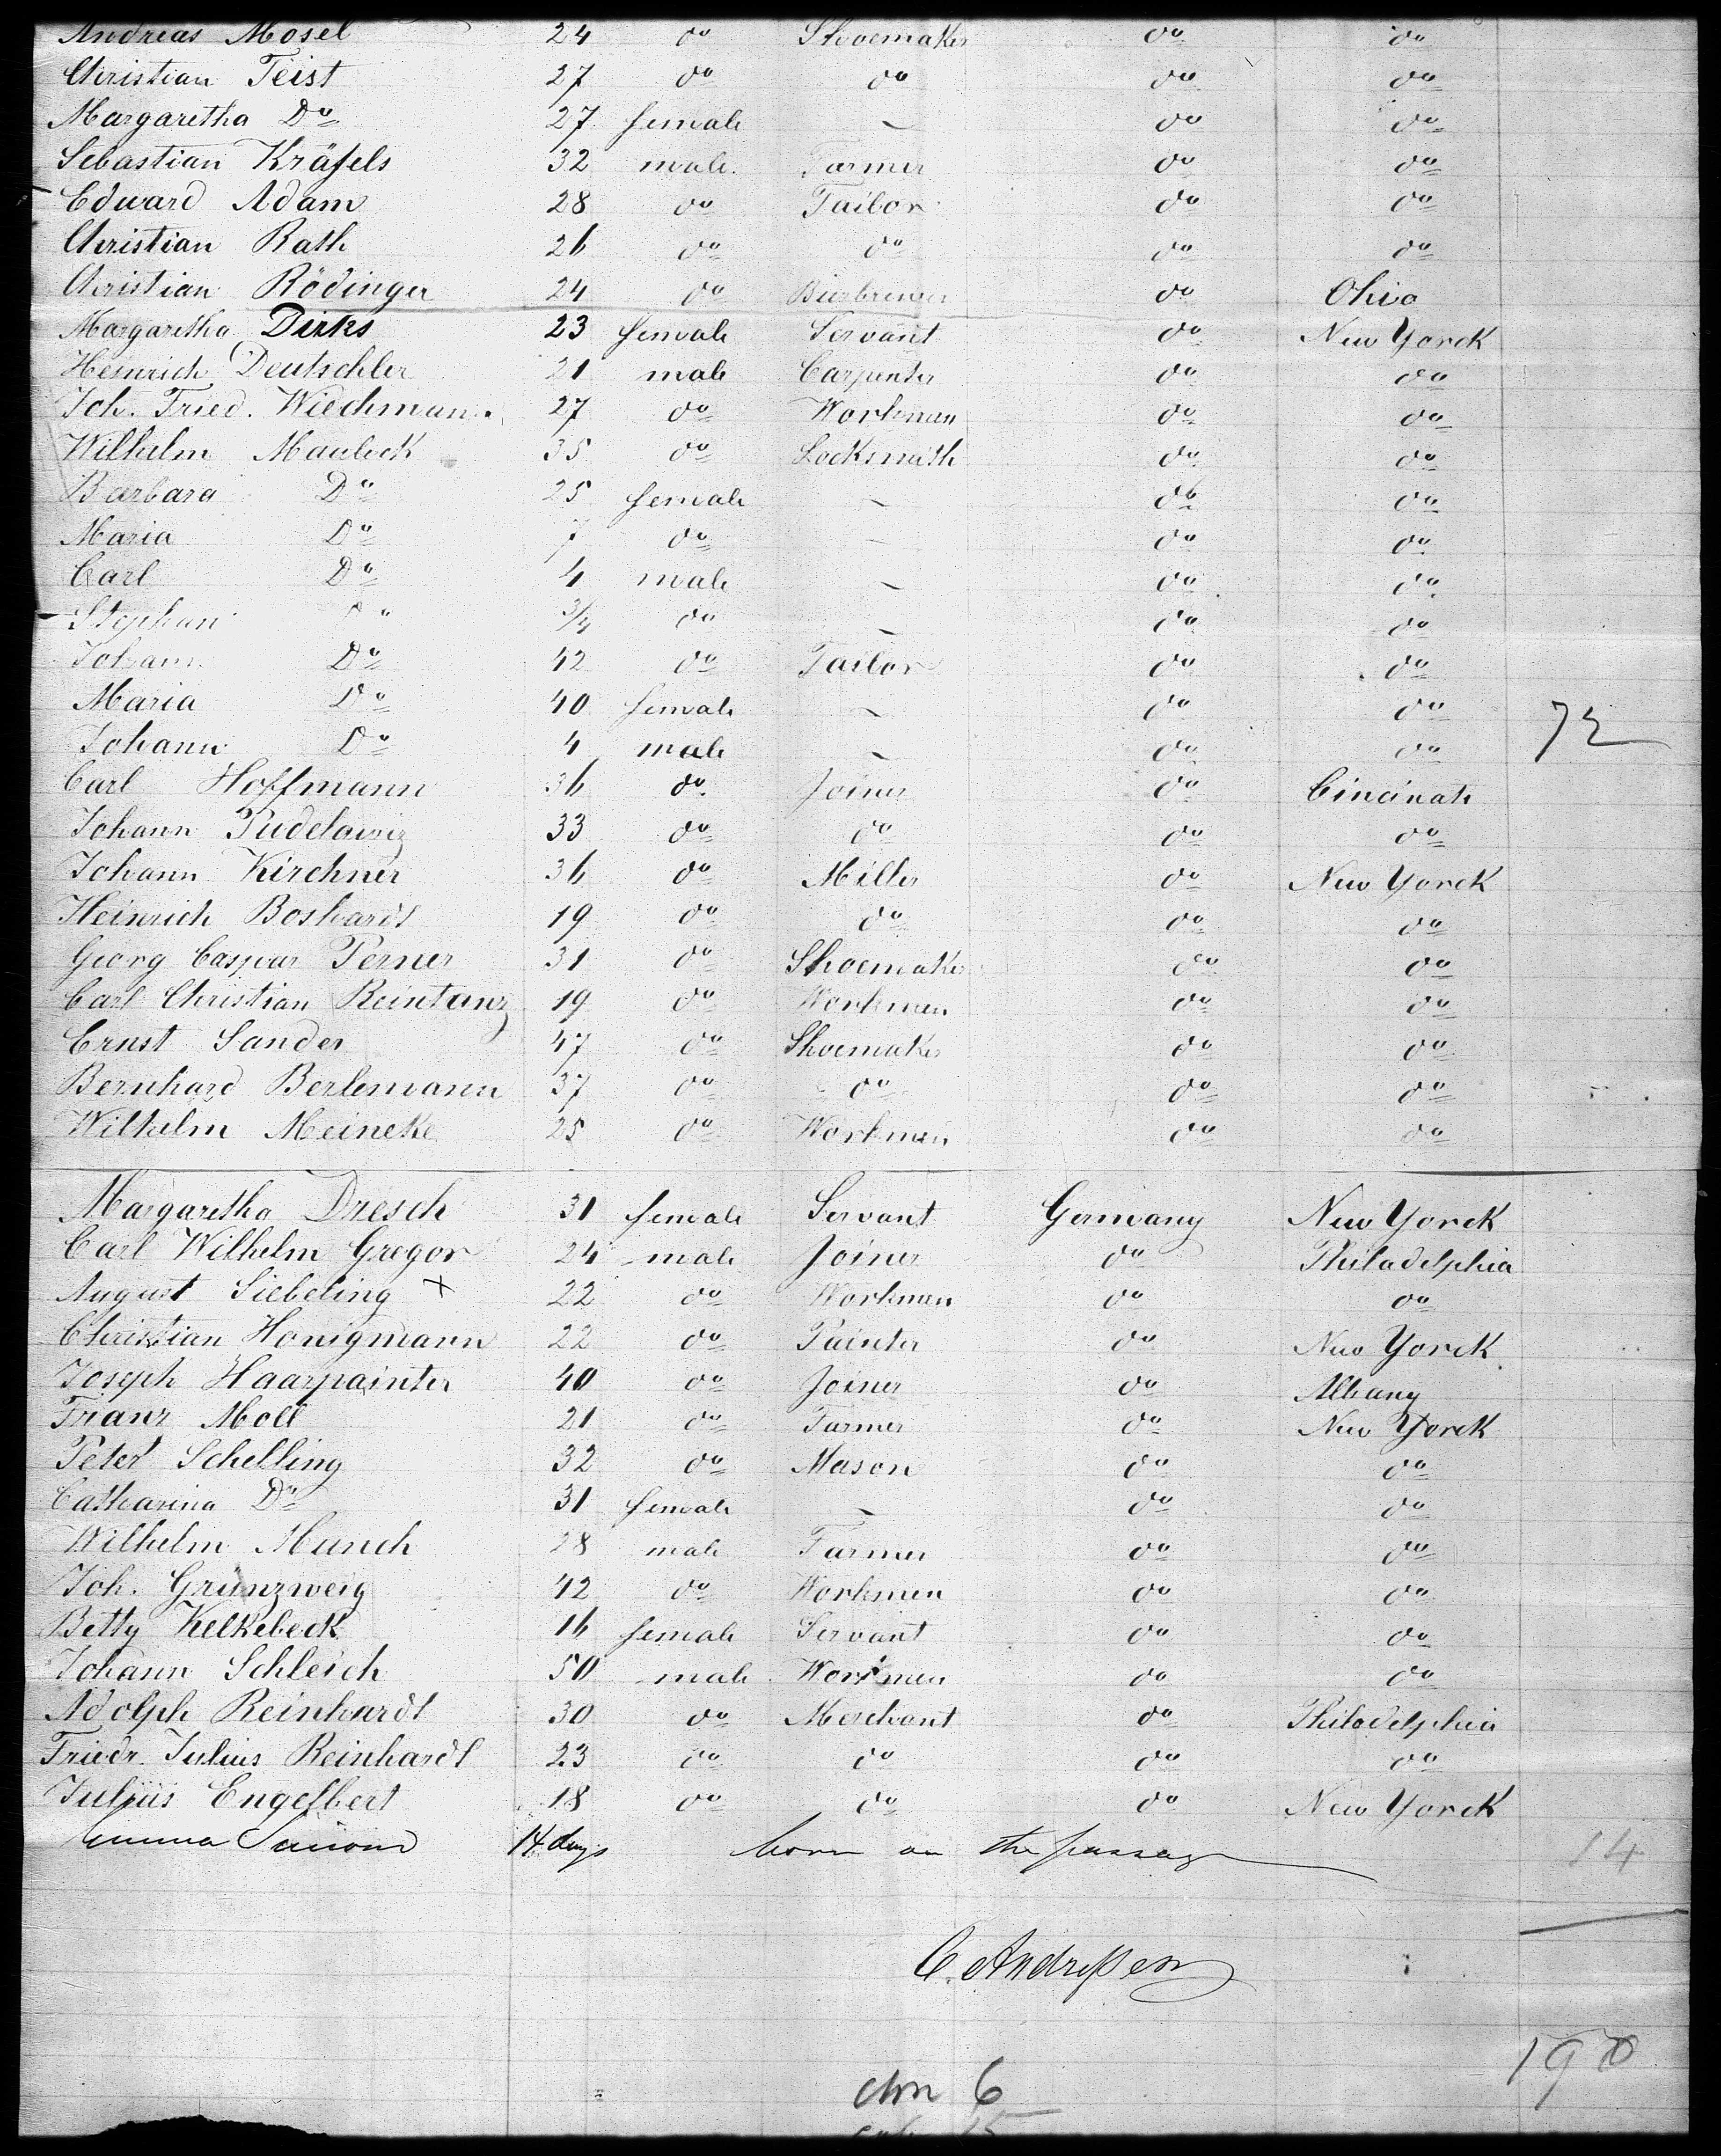 Andreas Mosel 24 do Shoemaker do do
Christian Teist 27 do do do do
Margaretha Do 27 female ~ do do
Sebastian Kräfels 32 male. Farmer do do
Edward Adam 28 do Tailor do do
Christian Rath 26 do do do do
Christian Rödinger 24 do Bierbrewer do Ohio
Margaretha Dirks 23 female Servant do New Yorck
Heinrich Deutschler 21 male Carpenter do do
Joh. Fried. Wiechman. 27 do Workman do do
Wilhelm Maulock 35 do Locksmith do do
Barbara Do 25 female ~ do do
Maria Do 7 do ~ do do
Carl Do 4 male ~ do do
Stephan Do 3/4 do ~ do do
Johann Do 42 do Tailor do do
Maria Do 40 female ~ do do
Johann Do 4 male ~ do do 72
Carl Hoffmann 36 do. Joiner do Cincinati
Johann Pudelawiz 33 do do do do
Johann Kirchner 36 do Miller do New Yorck
Heinrich Boshardt 19 do do do do
Georg Caspar Perner 31 do Shoemaker do do
Carl Christian Reintanz 19 do Workman do do
Ernst Sander 47 do Shoemaker do do
Bernhard Berlemann 37 do do do do
Wilhelm Meineke 25 do Workman do do
Margaretha Dresch 31 female Servant Germany New Yorck
Carl Wilhelm Gregor 24 male Joiner do Philadelphia
August Siebeling x 22 do Workman do do
Christian Honigmann 22 do Painter do New Yorck
Joseph Haarpainter 40 do Joiner do Albany
Franz Moll 21 do Farmer do New Yorck
Peter Schelling 32 do Mason do do
Catharina Do 31 female ~ do do
Wilhelm Munch 28 male Farmer do do
Joh. Grünzweig 42 do Workman do do
Betty Kelkebeck 16 female Servant do do
Johann Schleich 50 male Workman do do
Adolph Reinhardt 30 do Merchant do Philadelphia
Friedr. Julius Reinhardt 23 do do do do
Julius Engelbert 18 do do do New Yorck
Emma 14 days born on the passage 14
C. Andreßen
190
6